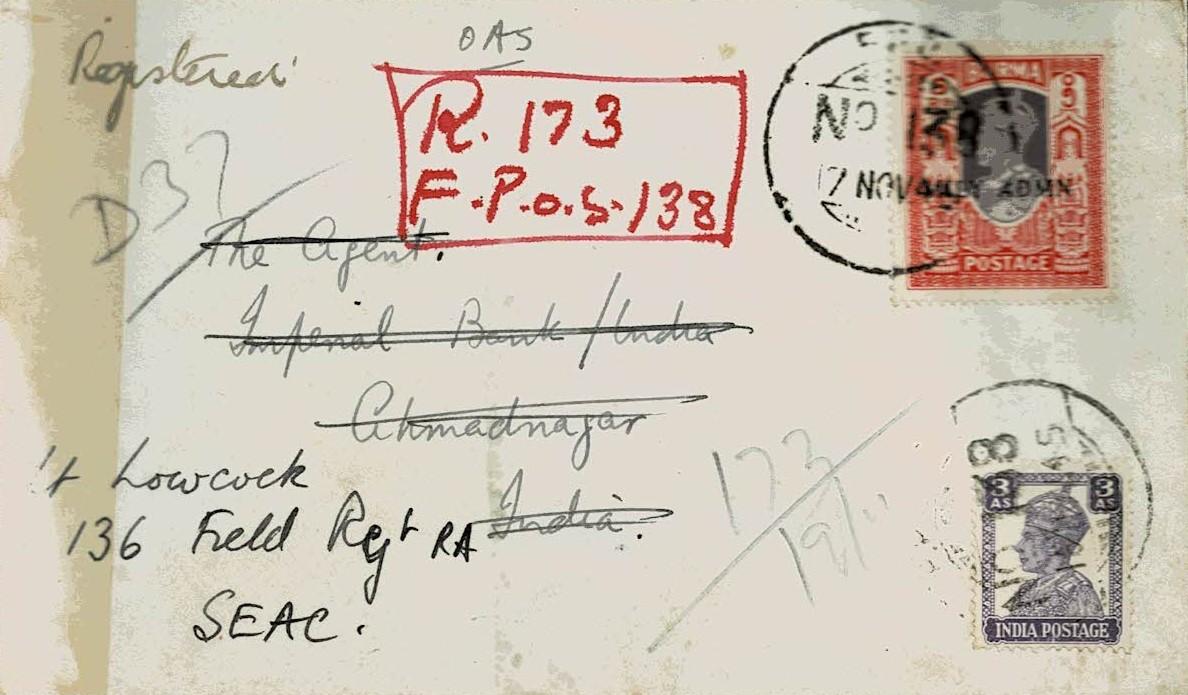 OAS
Registered
R. 173
F.P.O.S. 138
D 3?
The Agent.
Imperial Bank/India
Ahmadnagar
India.
Lt Lowcock
136 Field Regt RA
SEAC.
173
19/11
NO 138
17 NOV
BURMA
MILY ADMN
POSTAGE
3 AS 3 AS
INDIA POSTAGE